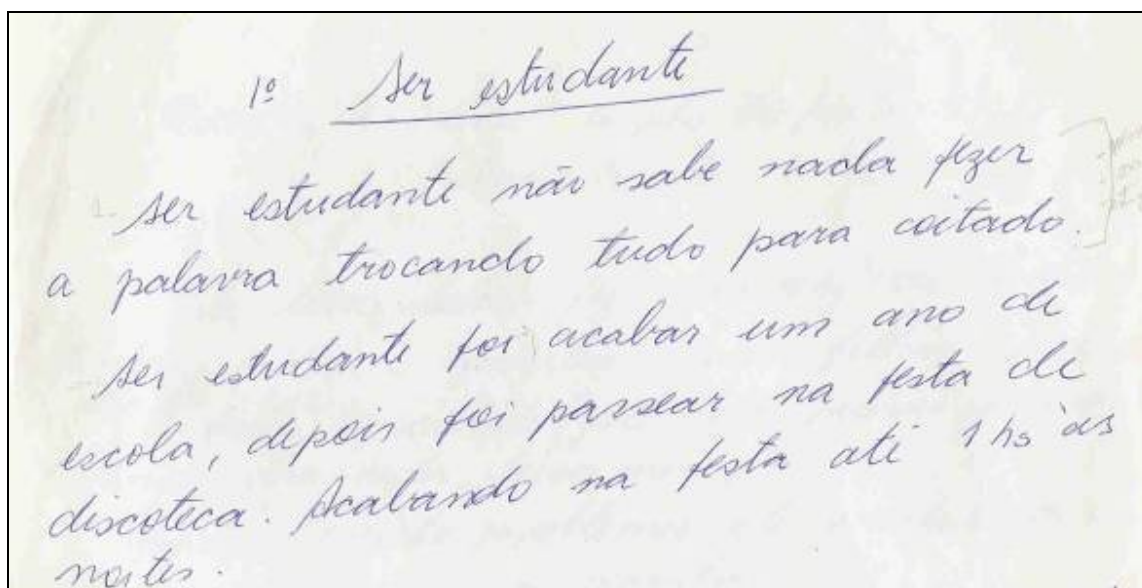 1º Ser estudante
1. Ser estudante não sabe nada fezer
a palavra trocando tudo para coitado.
Ser estudante foi acabar um ano de
escola, depois foi passear na festa de
discoteca. Acabando na festa até 1 hs às
noites.